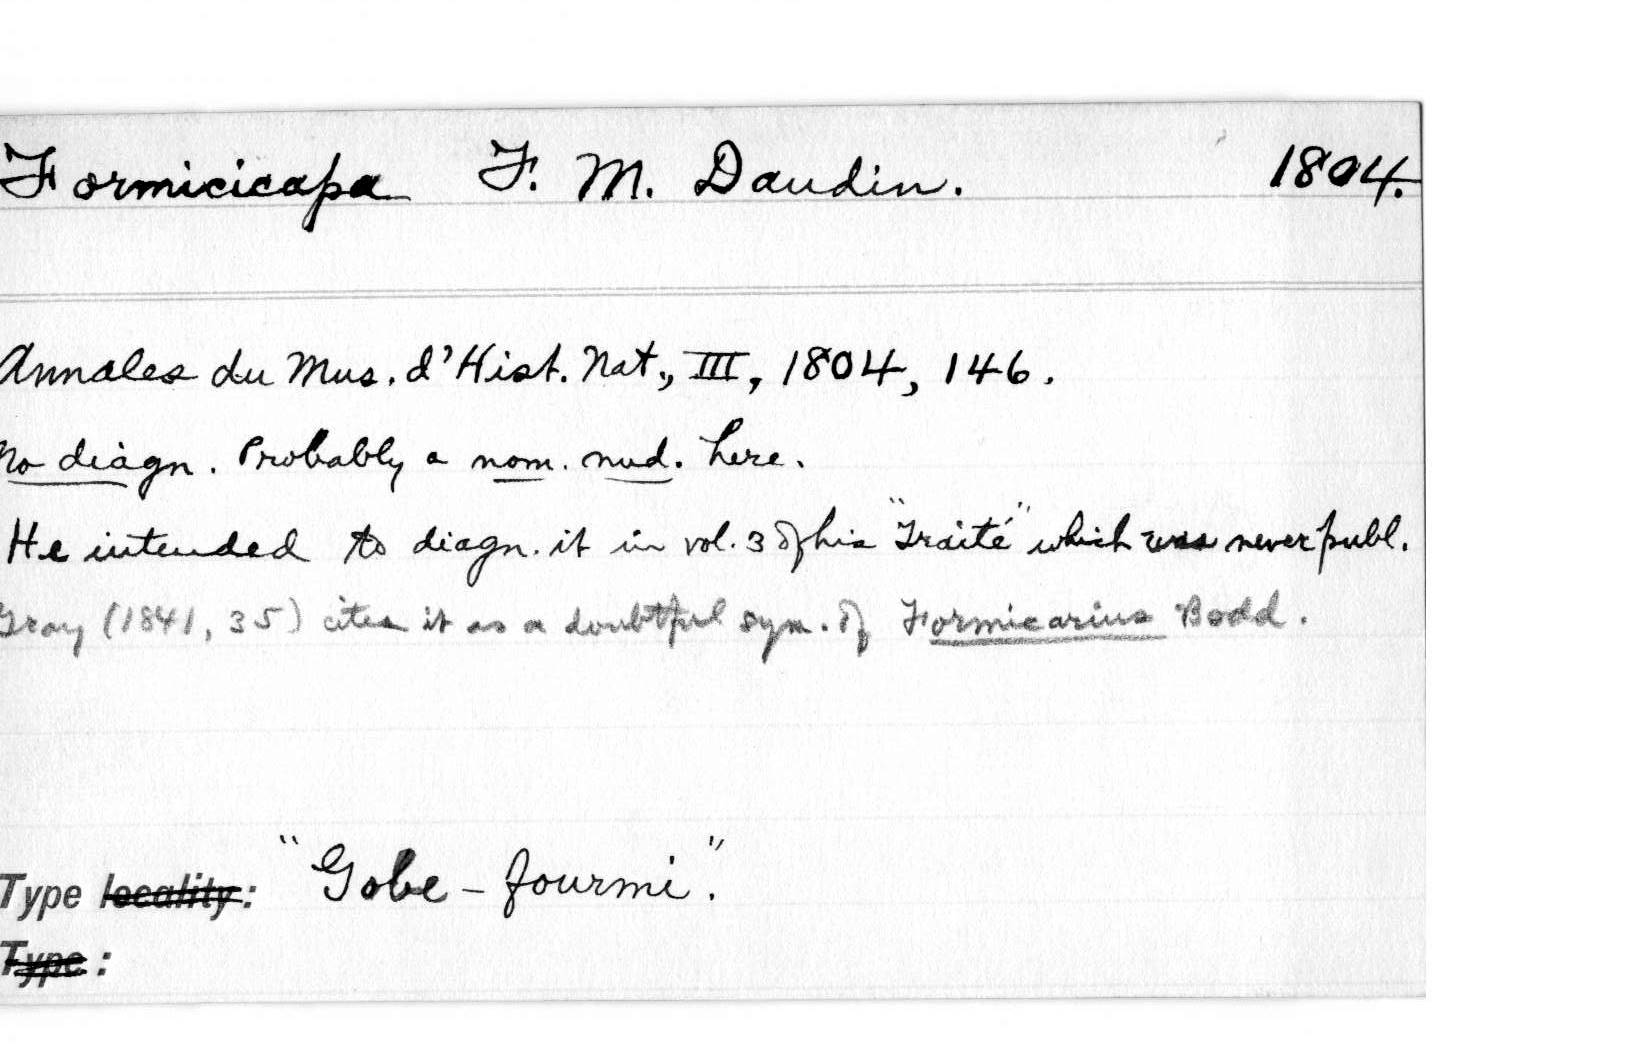 Formicicapa F. M. Daudin. 1804.
Annales du Mus. d'Hist. Nat., III, 1804, 146.
No diagn. Probably a nom. nud. here.
He intended to diagn. it in vol. 3 of his "Traité" which was never publ.
Gray (1841, 35) cites it as a doubtful syn. of Formicarius Bodd.
Type locality: "Gobe-fourmi".
Type: